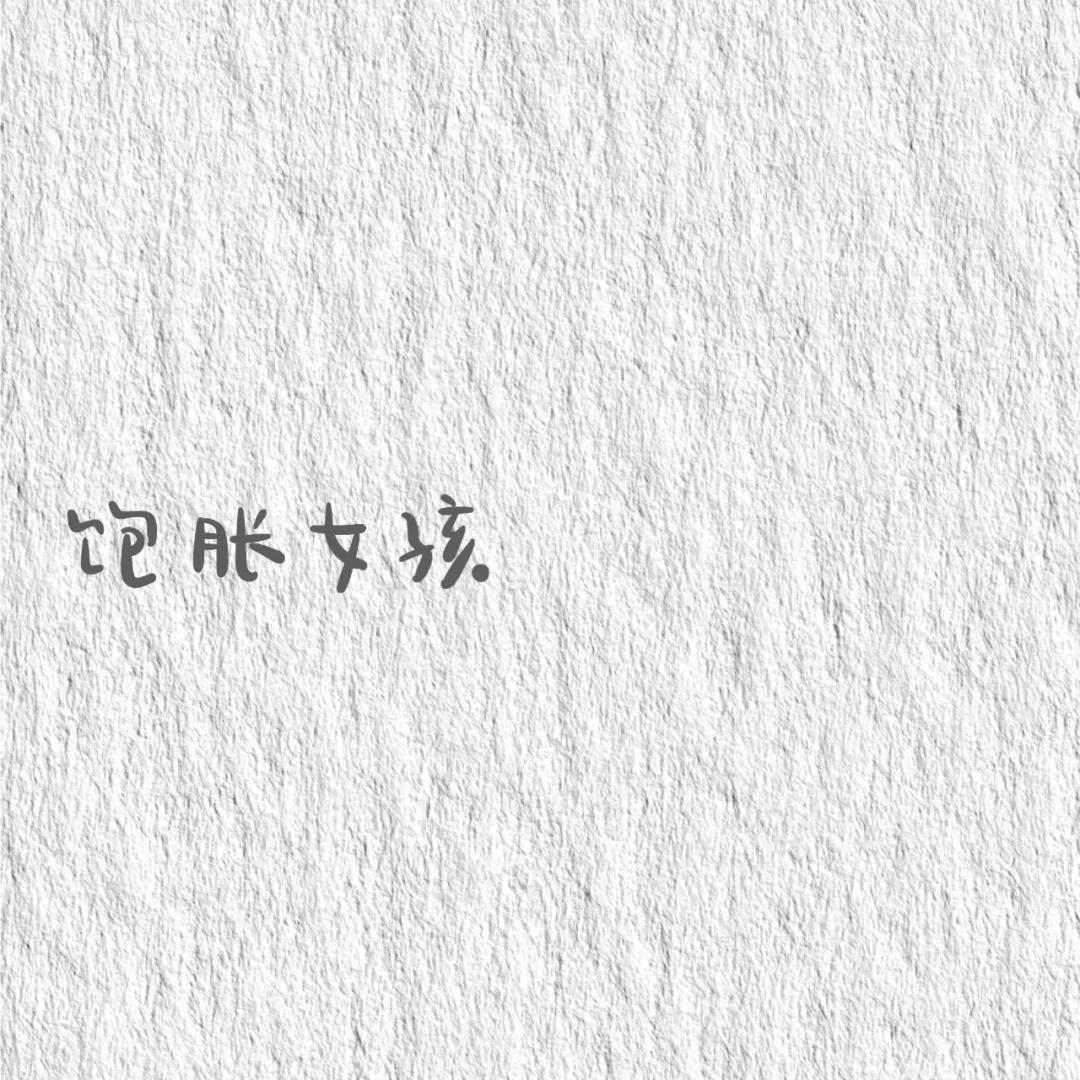 饱胀女孩